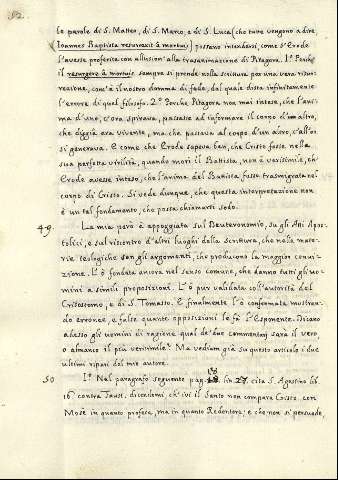 52.
le parole di S. Matteo, di S. Marco, e di S. Luca (che tutte vengono a dire
Ioannes Baptista resurrexit à mortuis) possano intendersi, come s'Erode
l'avesse proferite con allusion' alla trasanimazione di Pitagora. I.º Perchè
il resurgere à mortuis sempre si prende nella scrittura per una vera risur-
rezione, com'è il nostro domma di fede, dal quale dista infinitamente
l'errore di quel filosofo. 2.º Perche Pitagora non mai intese, che l'ani-
ma d'uno, c'ora spirava, passasse ad informare il corpo d'un altro,
che diggià era vivente, ma che passava al corpo d'un altro, c'all'or
si generava. E come che Erode sapeva ben, che Cristo fosse nella
sua perfetta virilità, quando morì il Batista, non è verisimile, ch'
Erode avesse inteso, che l'anima del Batista fusse trasmigrata nel
corpo di Cristo. Si vede dunque, che questa interpretazione non
è un tal fondamento, che possa chiamarsi sodo.
49. La mia però è appoggiata sul Deuteronomio, su gli Atti Apos-
tolici, e sul riscontro d'altri luoghi della Scrittura, che nelle mate-
rie teologiche son gli argomenti, che producono la maggior convin-
zione. L'ò fondata ancora nel senso comune, che danno tutti gli uo-
mini a simili proposizioni. L'ò pur validata coll'autorità del
Crisostomo, e di S. Tomaso. E finalmente l'ò confermata mostran-
do erronee, e false quante opposizioni le fà l'Esponente. Dicano
adesso gli uomini di ragione qual de' due commentarj sarà il vero
o almanco il più verisimile? Ma vediam già su questo articolo i due
ultimi ripari del mio autore.
50 I.º Nel paragrafo seguente pag. 18 lin. 27. cita S. Agostino lib.
16 contra Faust. dicendomi, ch'ivi il Santo non compara Cristo con
Mosè in quanto profeta, ma in quanto Redentore: e che non si persuade,